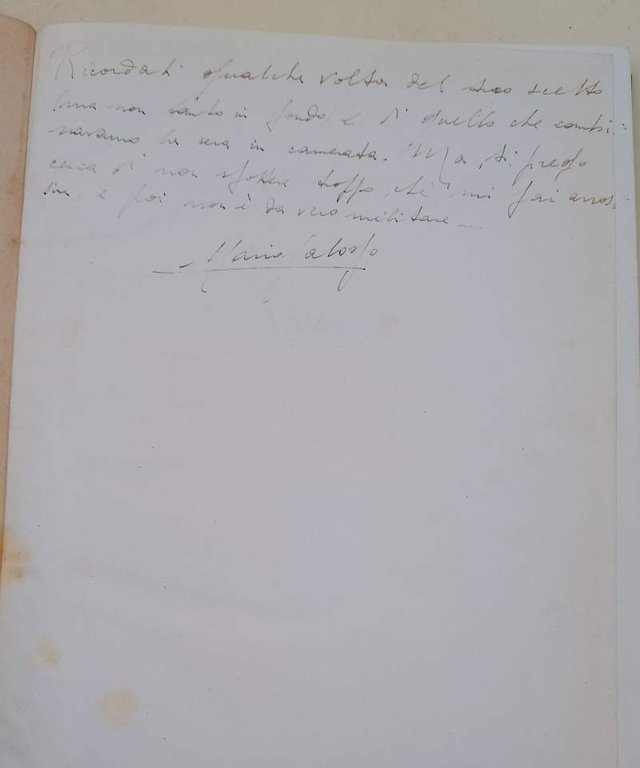 Ricordati qualche volta del tuo scelto
(ma non tanto in fondo) e di quello che combi-
navamo la sera in camerata. Ma, ti prego
cerca di non sfottere troppo, chè mi fai arros-
sire, e poi non è da vero militare ...
Mario